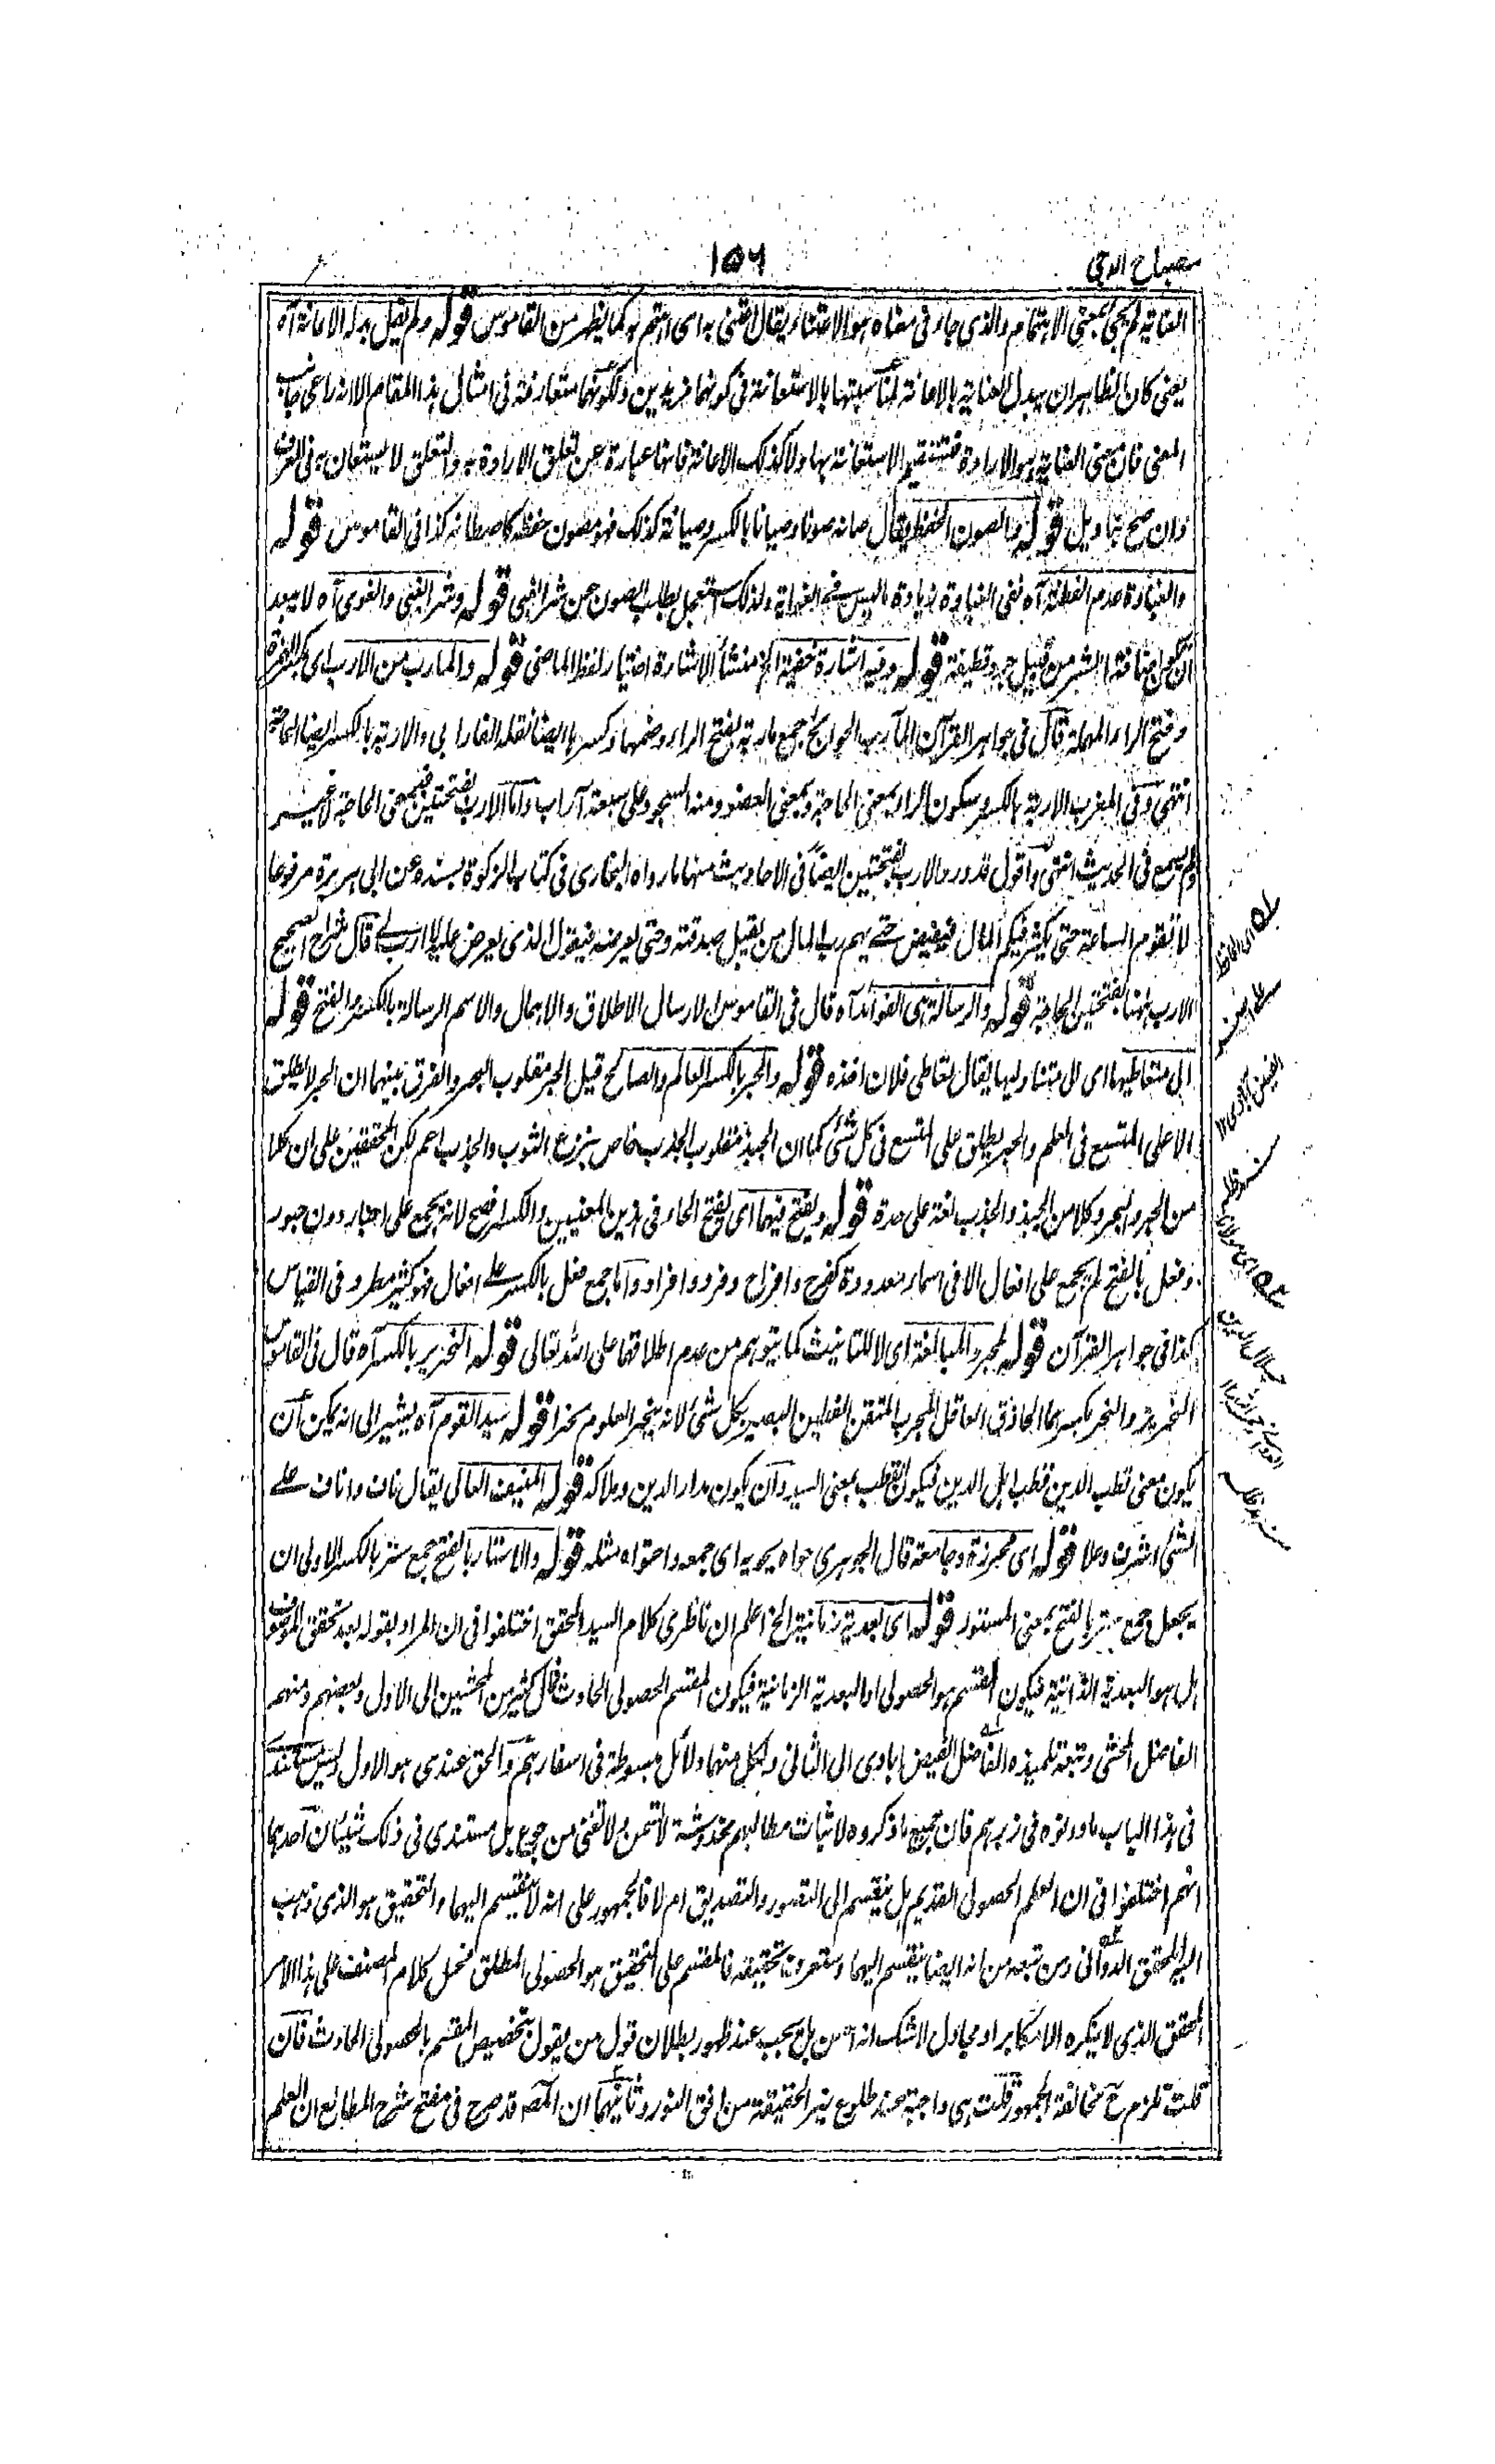 مصباح الدجى
١٥٦
العناية لم يجئ بمعنى الاهتمام والذى جاء فى معناه هو الاعتناء ويقال اعتنى به اى اهتم به كما يظهر من القاموس قوله ولم يقل بدله الاعانة آه
يعنى كان الظاهر ان يبدل العناية بالاعانة لمناسبتها بالاستعانة فى كونهما مزيدين ولكونهما متعارفة فى امثال هذا المقام الا انه راعى جانب
المعنى فان معنى العناية هو الارادة فتستقيم الاستعانة بها ولا كذلك الاعانة فانها عبارة عن تعلق الارادة به والتعلق لا يستعان به فى العرف
وان صح بتاويل قوله والصون الحفظ يقال صانه صونا وصيانا بالكسر وصيانة كذلك فهو مصون حفظه كاصطانه كذا فى القاموس قوله
والغباوة عدم الفطانة آه نفى الغباوة زيادة ليس فى الغواية ولذلك استعمل بطلب الصون عن شر الغبى قوله وشر الغبى والغوى آه لا يبعد
ان يكون اضافة الشر من قبيل جرد قطيفة قوله وفيه اشارة خفية الخ منشأ الاشارة اختيار لفظ الماضى قوله والمارب من الارب اى بكسر الهمزة
وفتح الراء المهملة قال فى جواهر القرآن المآرب الحوائج جمع ماربة بفتح الراء وضمها وكسرها ايضا نقله الفارابى والاربة بالكسر ايضا الحاجة
انتهى وفى المغرب الاربة بالكسر وسكون الراء بمعنى الحاجة وبمعنى العضو ومنه السجود على سبعة آراب واما الارب بفتحتين فبمعنى الحاجة لا غير
ولم يسمع فى الحديث انتهى واقول قد ورد الارب بفتحتين ايضا فى الاحاديث منها ما رواه البخارى فى كتاب الزكوة بسنده عن ابى هريرة مرفوعا
لا تقوم الساعة حتى يكثر فيكم المال فيفيض حتى يهم رب المال من يقبل صدقته وحتى يعرضه فيقول الذى يعرض عليه لا ارب لى قال شراح الصحيح
الارب ههنا بفتحتين الحاجة قوله والرسالة هى الفوائد آه قال فى القاموس الارسال الاطلاق والاهمال والاسم الرسالة بالكسر والفتح قوله
الى متعاطيها اى الى متناوليها يقال تعاطى فلان اخذه قوله والحبر بالكسر العالم والصالح قيل الحبر مقلوب البحر والفرق بينهما ان الحبر لا يطلق
الا على المتسع فى العلم والبحر يطلق على المتسع فى كل شئ كما ان الجبذ مقلوب الجذب خاص بنزع الثوب والجذب اعم لكن المحققين على ان كلا
من الحبر والبحر وكلا من الجبذ والجذب لغة على حدة قوله ويفتح فيهما اى بفتح الحاء فى هذين المعنيين والكسر افصح لانه يجمع على احبار دون حبور
وفعل بالفتح لم يجمع على افعال الا فى اسماء معدودة كفرخ وافراخ وفرد وافراد واما جمع فعل بالكسر على افعال فهو كثير مطرد فى القياس
كذا فى جواهر القرآن قوله لمجرد المبالغة اى لا للتانيث كما يتوهم من عدم اطلاقها على الله تعالى قوله النحرير بالكسر آه قال فى القاموس
النحرير والنحر بكسرهما الحاذق العاقل المجرب المتقن الفطن البصير بكل شئ لانه ينحر العلوم نحرا قوله سيد القوم آه يشير الى انه يمكن ان
يكون معنى قطب الدين قطب اهل الدين فيكون القطب بمعنى السيد وان يكون مدار الدين وملاكه قوله المنيف العالى يقال ناف واناف على
الشئ اشرف وعلا قوله اى محرزة وجامعة قال الجوهرى حواه يحويه اى جمعه واحتواه مثله قوله والاستار بالفتح جمع ستر بالكسر الاولى ان
يجعل جمع ستر بالفتح بمعنى المستور قوله اى بعدية زمانية الخ اعلم ان ناظرى كلام السيد المحقق اختلفوا فى ان المراد بقوله بعد تحقق الموصوف
هل هو البعدية الذاتية فيكون المقسم هو الحصولى او البعدية الزمانية فيكون المقسم الحصولى الحادث فمال كثير من المحشين الى الاول وبعضهم ومنهم
الفاضل المحشى وتبعه تلميذه الفاضل الفيض آبادى الى الثانى ولكل منهما دلائل مبسوطة فى اسفارهم والحق عندى هو الاول وليس مستندى
فى هذا الباب ما اوردوه فى زبرهم فان جميع ما ذكروه لاثبات مطالبهم مخدوشة لا تسمن ولا تغنى من جوع بل مستندى فى ذلك شيئان احدهما
انهم اختلفوا فى ان العلم الحصولى القديم هل ينقسم الى التصور والتصديق ام لا فالجمهور على انه لا ينقسم اليهما والتحقيق هو الذى ذهب
اليه المحقق الدوانى ومن تبعه من انه ايضا ينقسم اليهما وستعرف تحقيقه فالمقسم على التحقيق هو الحصولى المطلق فحمل كلام المصنف على هذا الامر
المحقق الذى لا ينكره الا مكابر او مجادل لا شك انه احسن بل يجب عند ظهور بطلان قول من يقول بتخصيص المقسم بالحصولى الحادث فان
قلت تلزم ح مخالفة الجمهور قلت هى واجبة عند طلوع نير الحقيقة من افق النور وثانيهما ان المصـ قد صرح فى مفتح شرح المطالع ان العلم
الفيض آبادى ١٢
جلال الدين